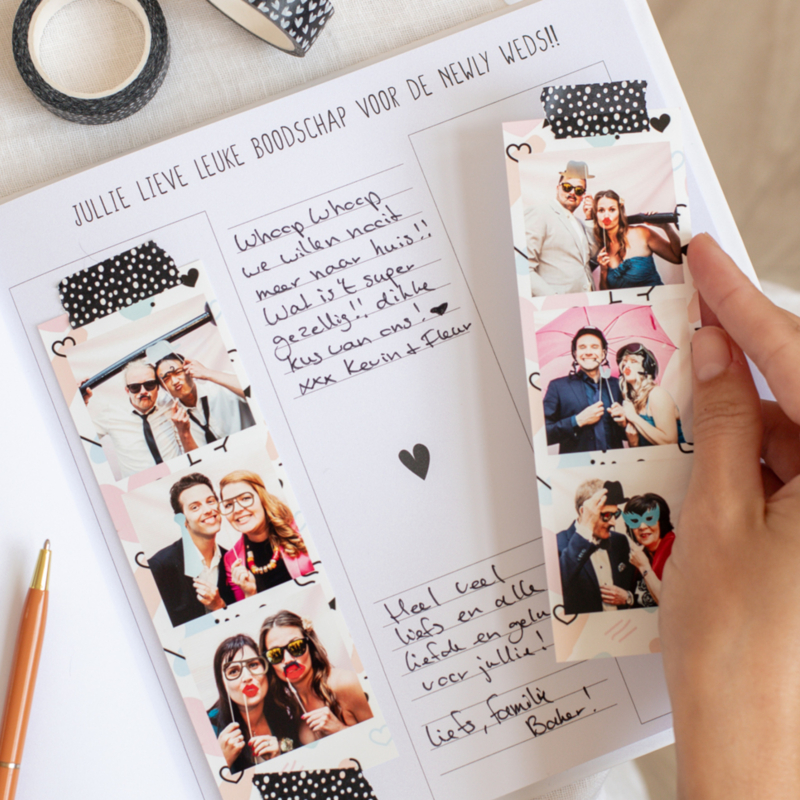 JULLIE LIEVE LEUKE BOODSCHAP VOOR DE NEWLY WEDS!!
Whoop Whoop
we willen nooit
meer naar huis!!
Wat is't super
gezellig!! dikke
kus van ons! ♥
xxx Kevin + Fleur
Heel veel
liefs en alle
liefde en gelu
voor jullie!
liefs, familie
Bakker!